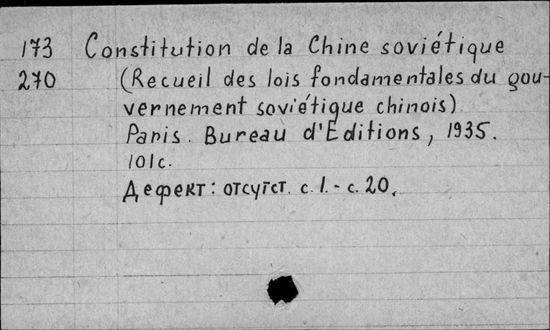 173 Constitution de la Chine soviétique
270 (Recueil des lois fondamentales du gou-
vernement soviétique chinois)
Paris. Bureau d'Editions, 1935.
101c.
Дефект: отсутст. с. 1.- с. 20.